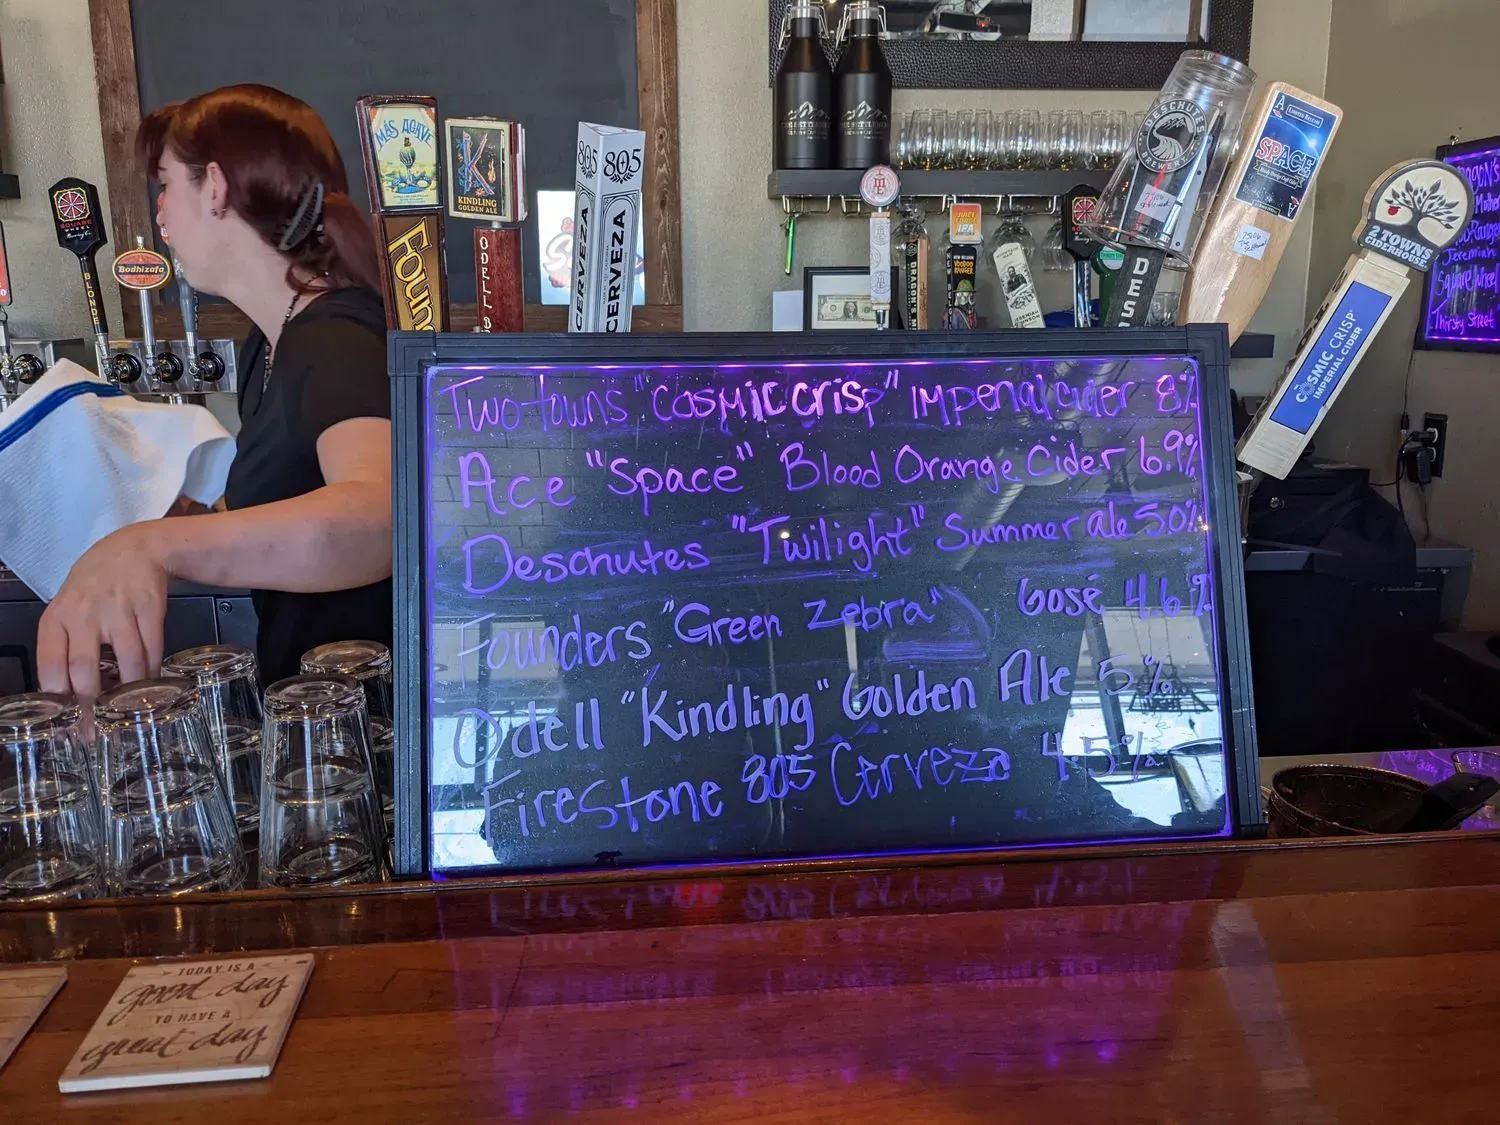 MÁS AGAVE
K
KINDLING
GOLDEN ALE
805
805
CERVEZA
CERVEZA
SQUARE
WHEEL
BLONDE
Bodhizafa
ODELL B
FOUN
JUICE FORCE
IPA
DRAGONS
NEW BELGIUM
VOODOO
RANGER
JEREMIAH
JOHNSON
DESCHUTES
BREWERY
DES
A
LIMITED RELEASE
SPACE
Blood Orange Craft Cider
A
2 TOWNS
CIDERHOUSE
COSMIC CRISP
IMPERIAL CIDER
Jeremiah
Square Wheel
Thirsty Street
Two towns "Cosmic crisp" Imperial cider 8%
Ace "Space" Blood Orange Cider 6.9%
Deschutes "Twilight" Summer ale 5.0%
Founders "Green Zebra" Gosé 4.6%
Odell "Kindling" Golden Ale 5%
Firestone 805 Cerveza 4.5%
TODAY IS A
good day
TO HAVE A
great day